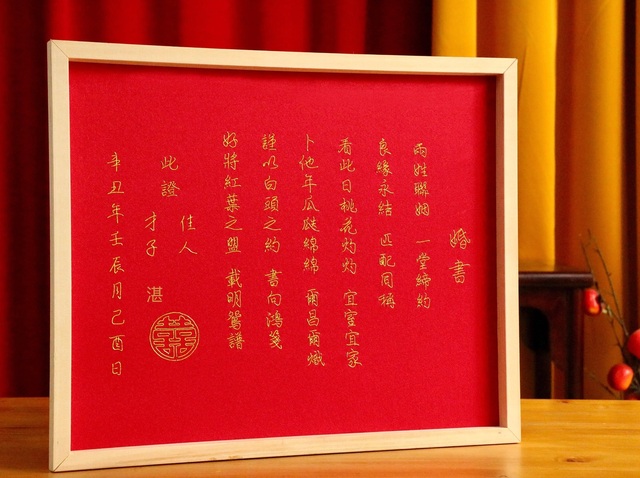 婚書
兩姓聯姻 一堂締約
良緣永結 匹配同稱
看此日桃花灼灼 宜室宜家
卜他年瓜瓞綿綿 爾昌爾熾
謹以白頭之約 書向鴻箋
好將紅葉之盟 載明鴛譜
此證
佳人
才子 湛
囍
辛丑年壬辰月己酉日